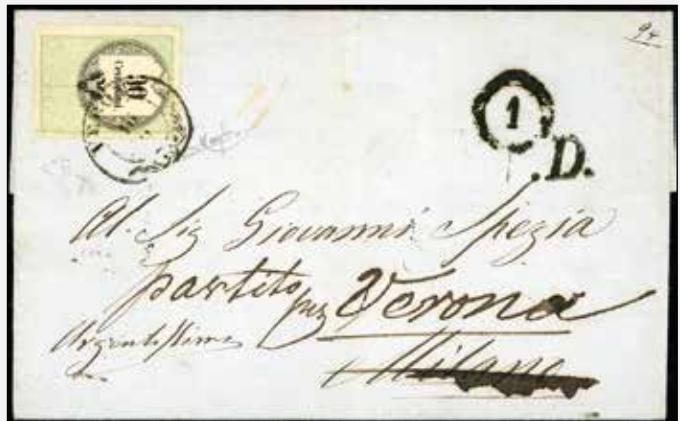 9x
30
1
.D.
Al. Sig Giovanni Spezia
partito per Verona
Urgentissima
Milano